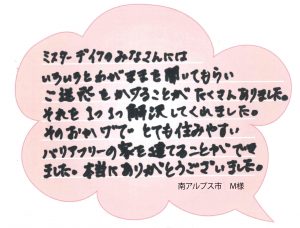 ミスターデイクのみなさんには
いろいろとわがままを聞いてもらい
ご迷惑をかけることがたくさんありました。
それを1つ1つ解決してくれました。
そのおかげでとても住みやすい
バリアフリーの家を建てることができ
ました。本当にありがとうございました。
南アルプス市 M様